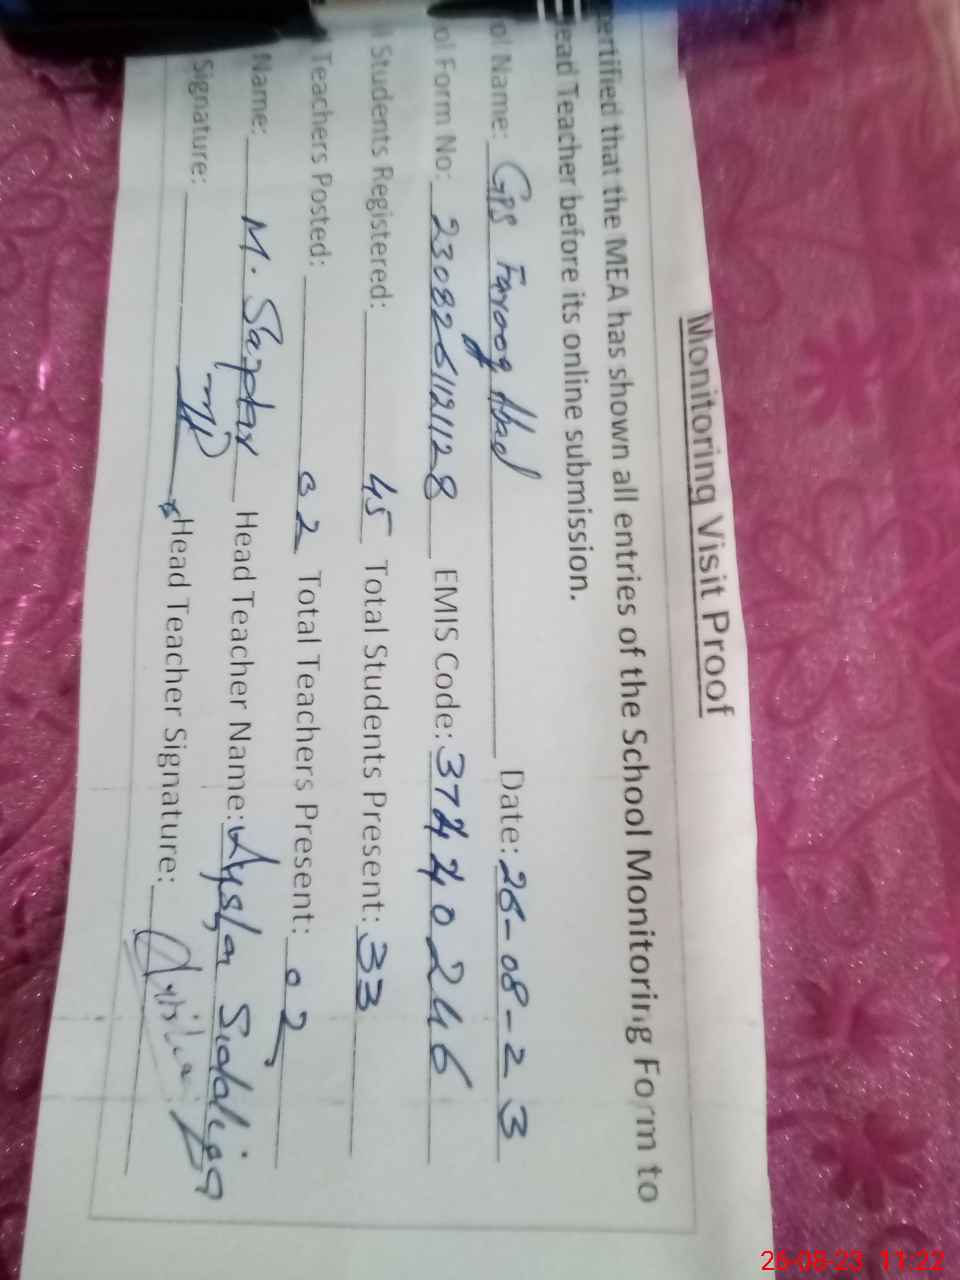 Monitoring Visit Proof
ertified that the MEA has shown all entries of the School Monitoring Form to
ead Teacher before its online submission.
ol Name: GPS Farooq Abad Date: 26-08-23
ol Form No: 2308261121128 EMIS Code: 37440246
l Students Registered: 45 Total Students Present: 33
Teachers Posted: 02 Total Teachers Present: 02
Name: M. Safdar Head Teacher Name: Aysha Siddiqa
Signature: Head Teacher Signature:
26-08-23 11:22